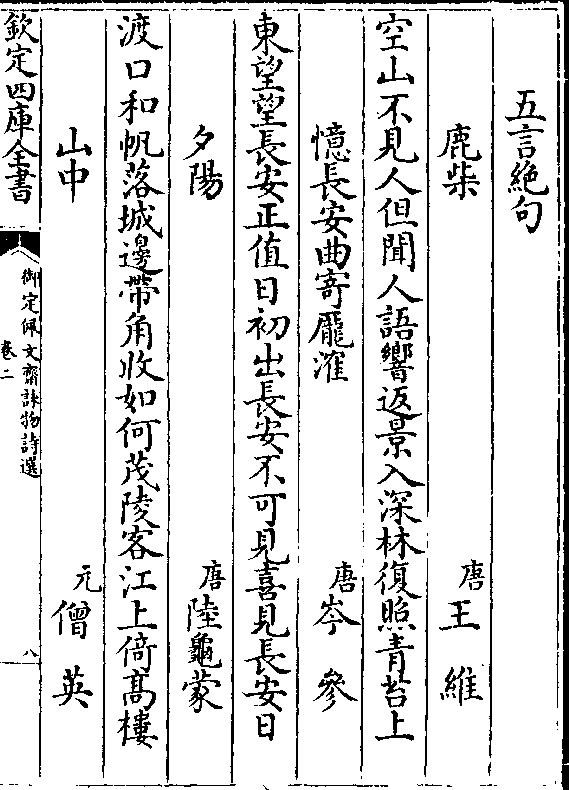 五言絶句
鹿柴 唐 王維
空山不見人但聞人語響返景入深林復照青苔上
憶長安曲寄龎㴶 唐 岑參
東望望長安正值日初出長安不可見喜見長安日
夕陽 唐 陸龜蒙
渡口和帆落城邊帶角收如何茂陵客江上倚髙樓
山中 元 僧英
欽定四庫全書 御定佩文齋詠物詩選 卷二 八